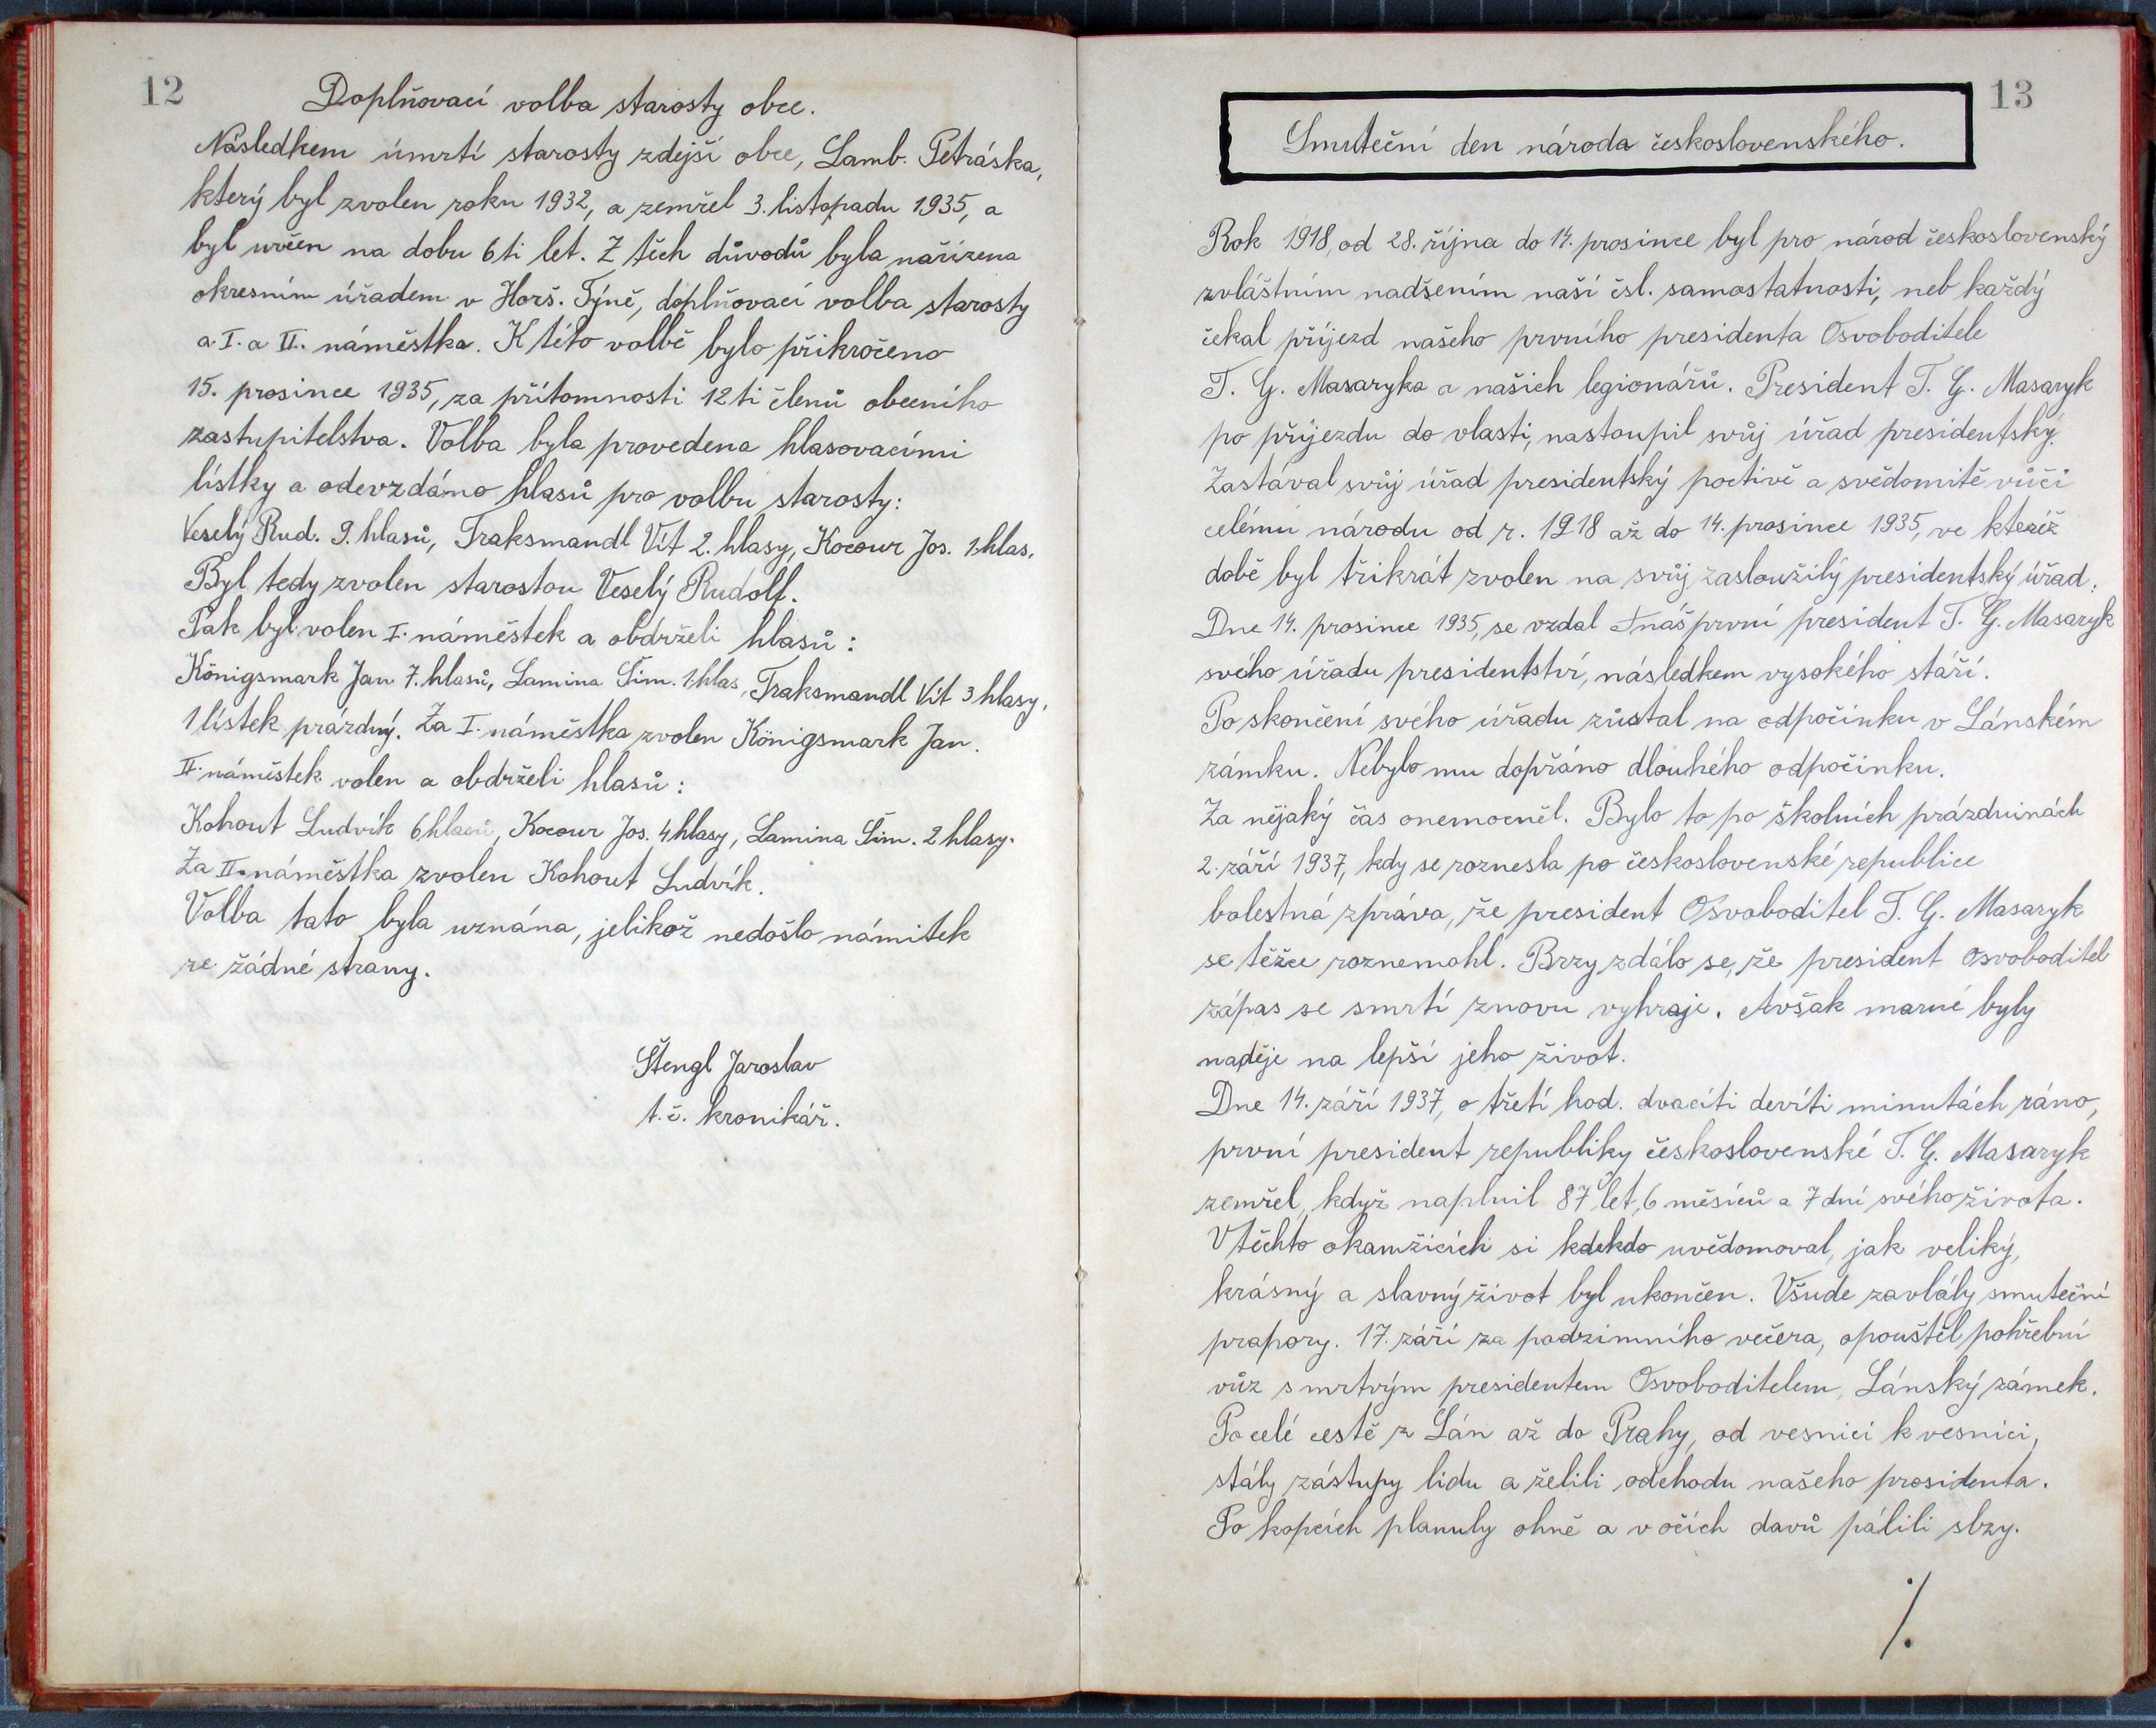 12
Doplňovací volba starosty obce.
Následkem úmrtí starosty zdejší obce, Lamb. Petráska,
který byl zvolen roku 1932, a zemřel 3. listopadu 1935, a
byl určen na dobu 6 ti let. Z těch důvodů byla nařízena
okresním úřadem v Horš. Týně, doplňovací volba starosty
a I. a II. náměstka. K této volbě bylo přikročeno
15. prosince 1935, za přítomnosti 12 ti členů obecního
zastupitelstva. Volba byla provedena hlasovacími
lístky a odevzdáno hlasů pro volbu starosty:
Veselý Rud. 9. hlasů, Traksmandl Vít 2. hlasy, Kocour Jos. 1.hlas.
Byl tedy zvolen starostou Veselý Rudolf.
Pak byl volen I. náměstek a obdrželi hlasů:
Königsmark Jan 7. hlasů, Lamina Šim. 1 hlas, Traksmandl Vít 3 hlasy,
1 lístek prázdný. Za I. náměstka zvolen Königsmark Jan.
II. náměstek volen a obdrželi hlasů:
Kohout Ludvík 6 hlasů, Kocour Jos. 4 hlasy, Lamina Šim. 2 hlasy.
Za II. náměstka zvolen Kohout Ludvík.
Volba tato byla uznána, jelikož nedošlo námitek
ze žádné strany.
Štengl Jaroslav
t. č. kronikář.
13
Smuteční den národa československého.
Rok 1918, od 28. října do 14. prosince byl pro národ československý
zvláštním nadšením naší čsl. samostatnosti, neb každý
čekal příjezd našeho prvního presidenta Osvoboditele
T. G. Masaryka a našich legionářů. President T. G. Masaryk
po příjezdu do vlasti, nastoupil svůj úřad presidentský.
Zastával svůj úřad presidentský poctivě a svědomitě vůči
celému národu od r. 1918 až do 14. prosince 1935, ve kteréž
době byl třikrát zvolen na svůj zasloužilý presidentský úřad.
Dne 14. prosince 1935, se vzdal náš první president T. G. Masaryk
svého úřadu presidentství, následkem vysokého stáří.
Po skončení svého úřadu zůstal na odpočinku v Lánském
zámku. Nebylo mu dopřáno dlouhého odpočinku.
Za nějaký čas onemocněl. Bylo to po školních prázdninách
2. září 1937, kdy se roznesla po československé republice
bolestná zpráva, že president Osvoboditel T. G. Masaryk
se těžce roznemohl. Brzy zdálo se, že president osvoboditel
zápas se smrtí znovu vyhraje. Avšak marné byly
naděje na lepší jeho život.
Dne 14. září 1937, o třetí hod. dvacíti devíti minutách ráno,
první president republiky československé T. G. Masaryk
zemřel, když naplnil 87 let, 6 měsíců a 7 dní svého života.
V těchto okamžicích si kdekdo uvědomoval, jak veliký,
krásný a slavný život byl ukončen. Všude zavlály smuteční
prapory. 17. září za podzimního večera, opouštěl pohřební
vůz s mrtvým presidentem Osvoboditelem, Lánský zámek.
Po celé cestě z Lán až do Prahy, od vesnici k vesnici,
stály zástupy lidu a želili odchodu našeho presidenta.
Po kopcích planuly ohně a v očích davů pálili slzy.
./.